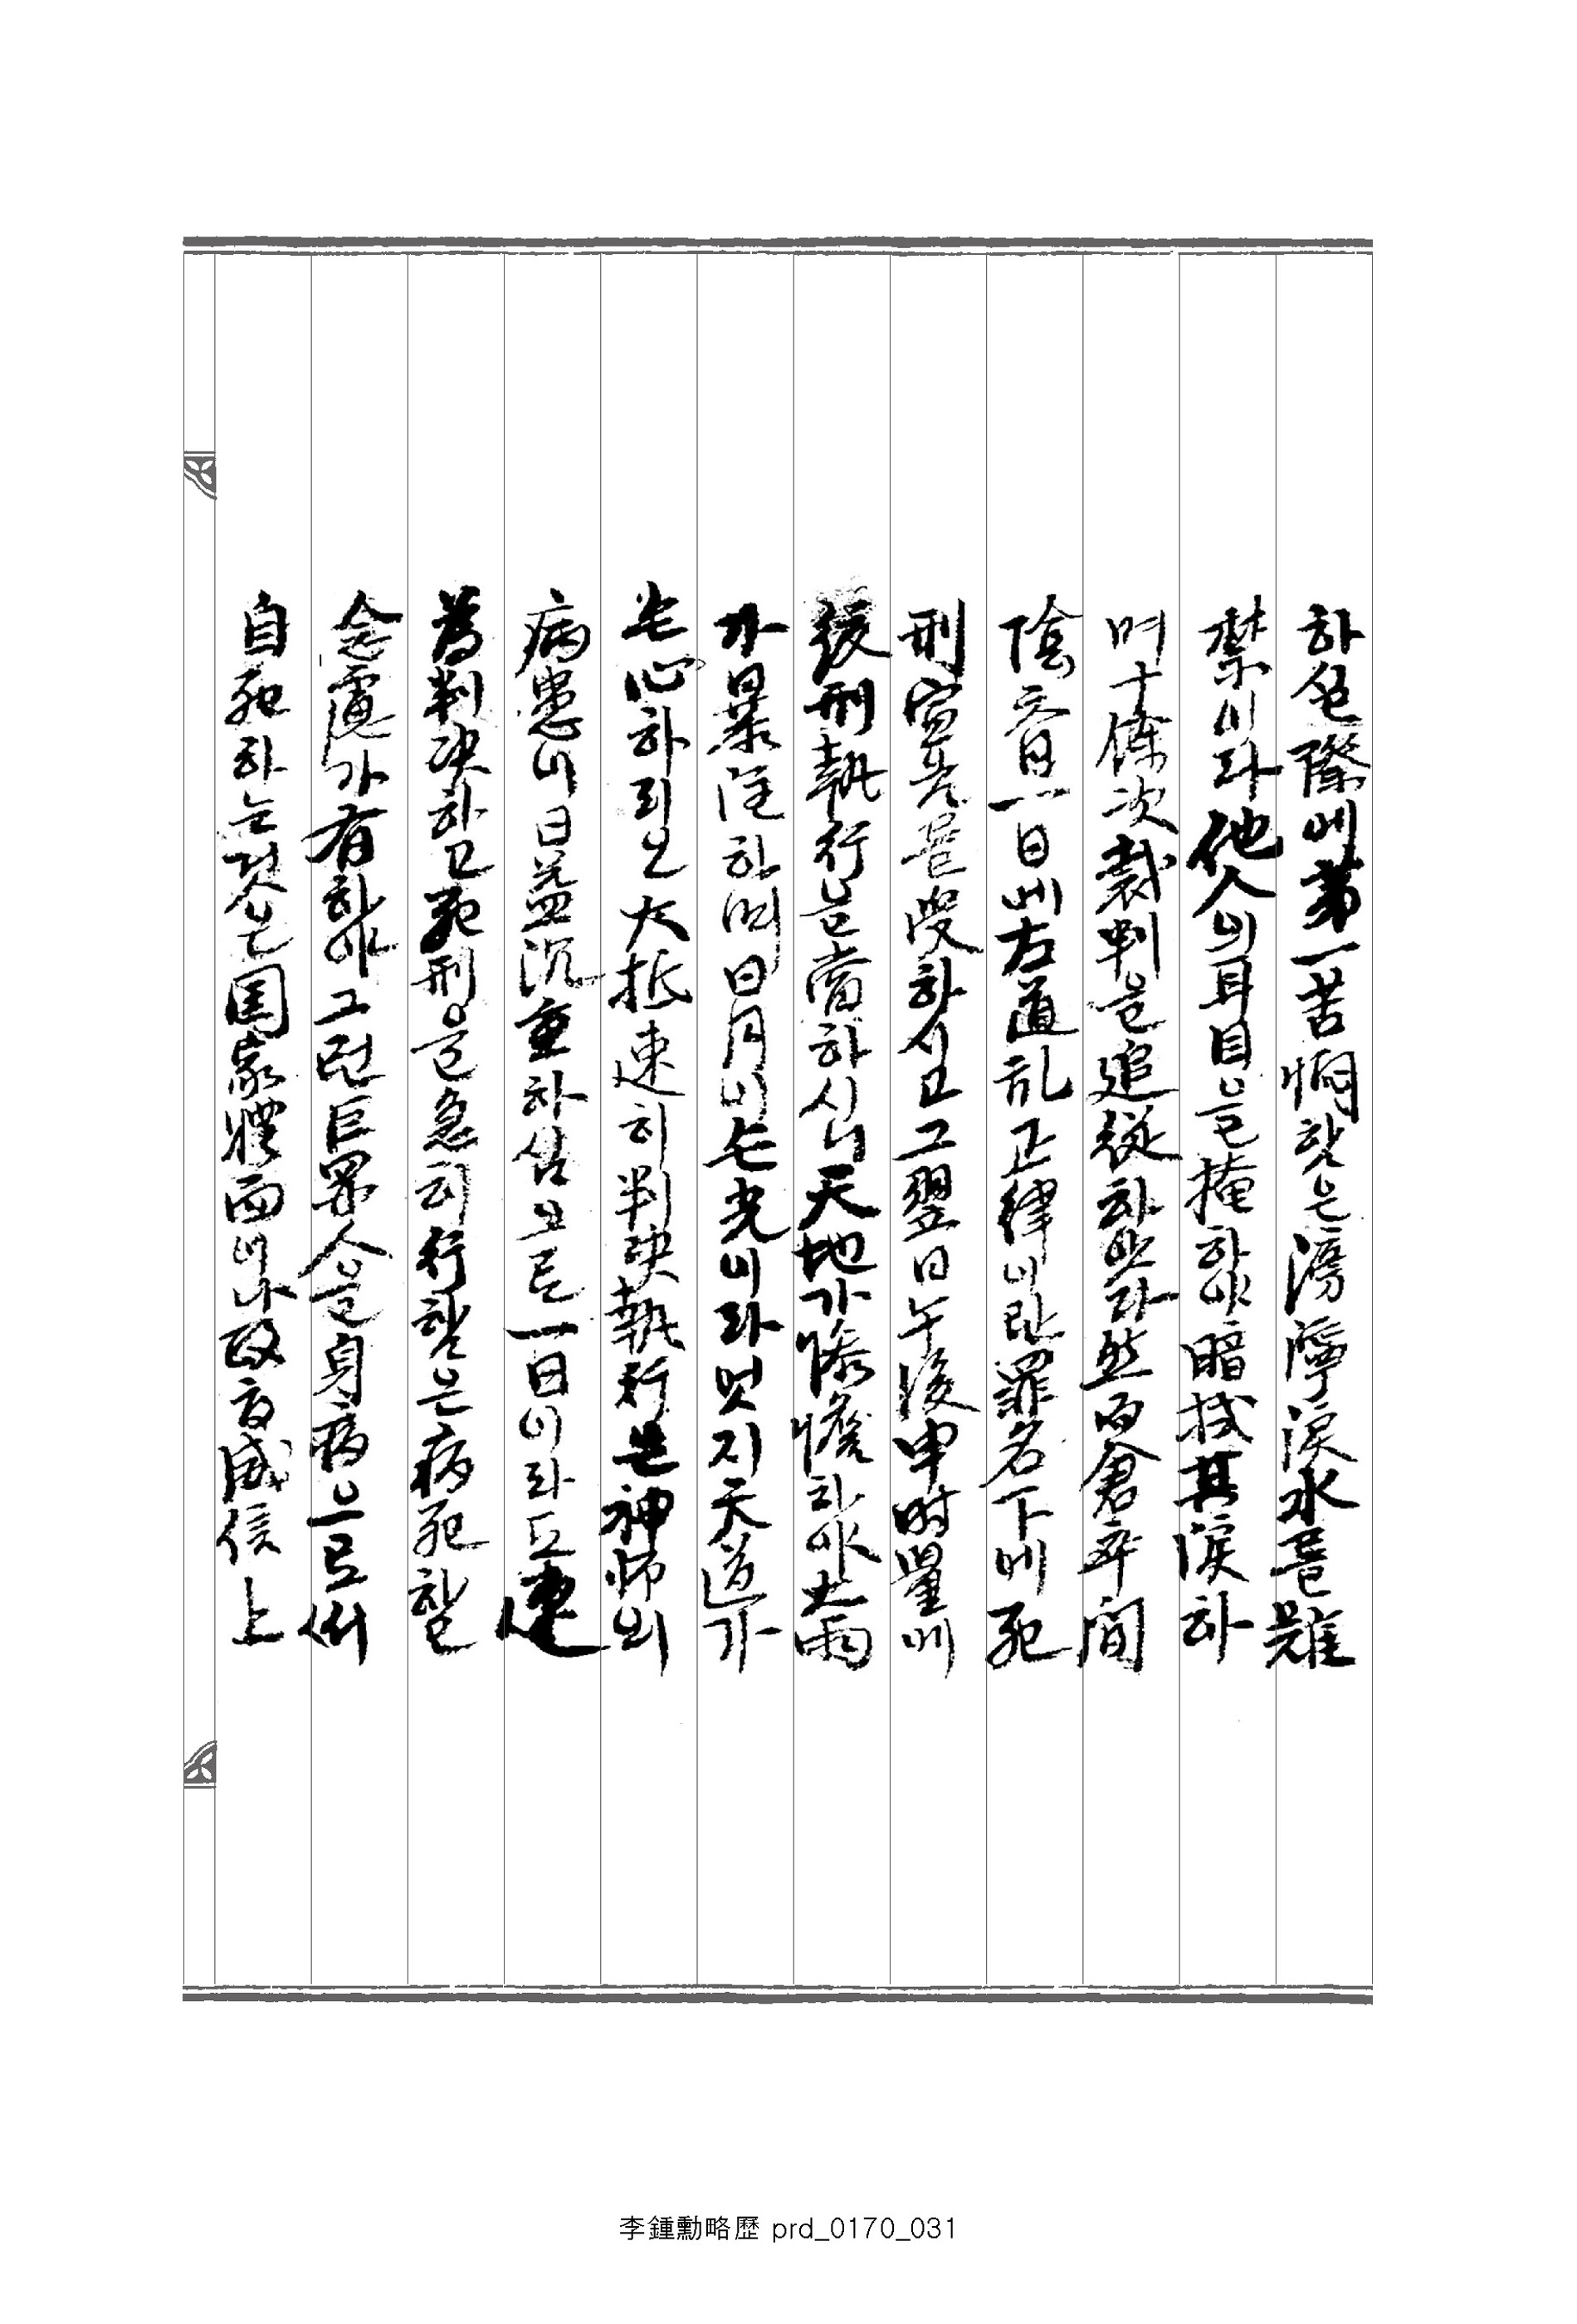 하실 際에 第一苦悶핫은 滂濘淚水를 難
禁이라 他人의 耳目을 掩하야 暗拭其淚하
며 十餘次 裁判을 追從하얏라 然而倉卒間
陰六月一日에 左道亂正律이란 罪名下에 死
刑宣告를 受하시고 그翌日午後申時量에
絞刑執行을 當하시니 天地가 慘憺하야 大雨
가 暴注하며 日月이 失光이라 엇지 天道가
무心하리오 大抵 速히 判決執行은 神師의
病患이 日益沉重하심으로 一日이라도 速
爲判決하고 死刑을 急히 行함은 病死할
念慮가 有하야 그런 巨罪人을 身病으로써
自死하는 것은 国家 體面이나 政府 威信上